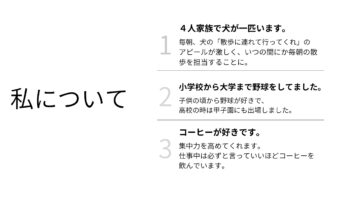 私について
1
４人家族で犬が一匹います。
毎朝、犬の「散歩に連れて行ってくれ」の
アピールが激しく、いつの間にか毎朝の散
歩を担当することに。
2
小学校から大学まで野球をしてました。
子供の頃から野球が好きで、
高校の時は甲子園にも出場しました。
3
コーヒーが好きです。
集中力を高めてくれます。
仕事中は必ずと言っていいほどコーヒーを
飲んでいます。